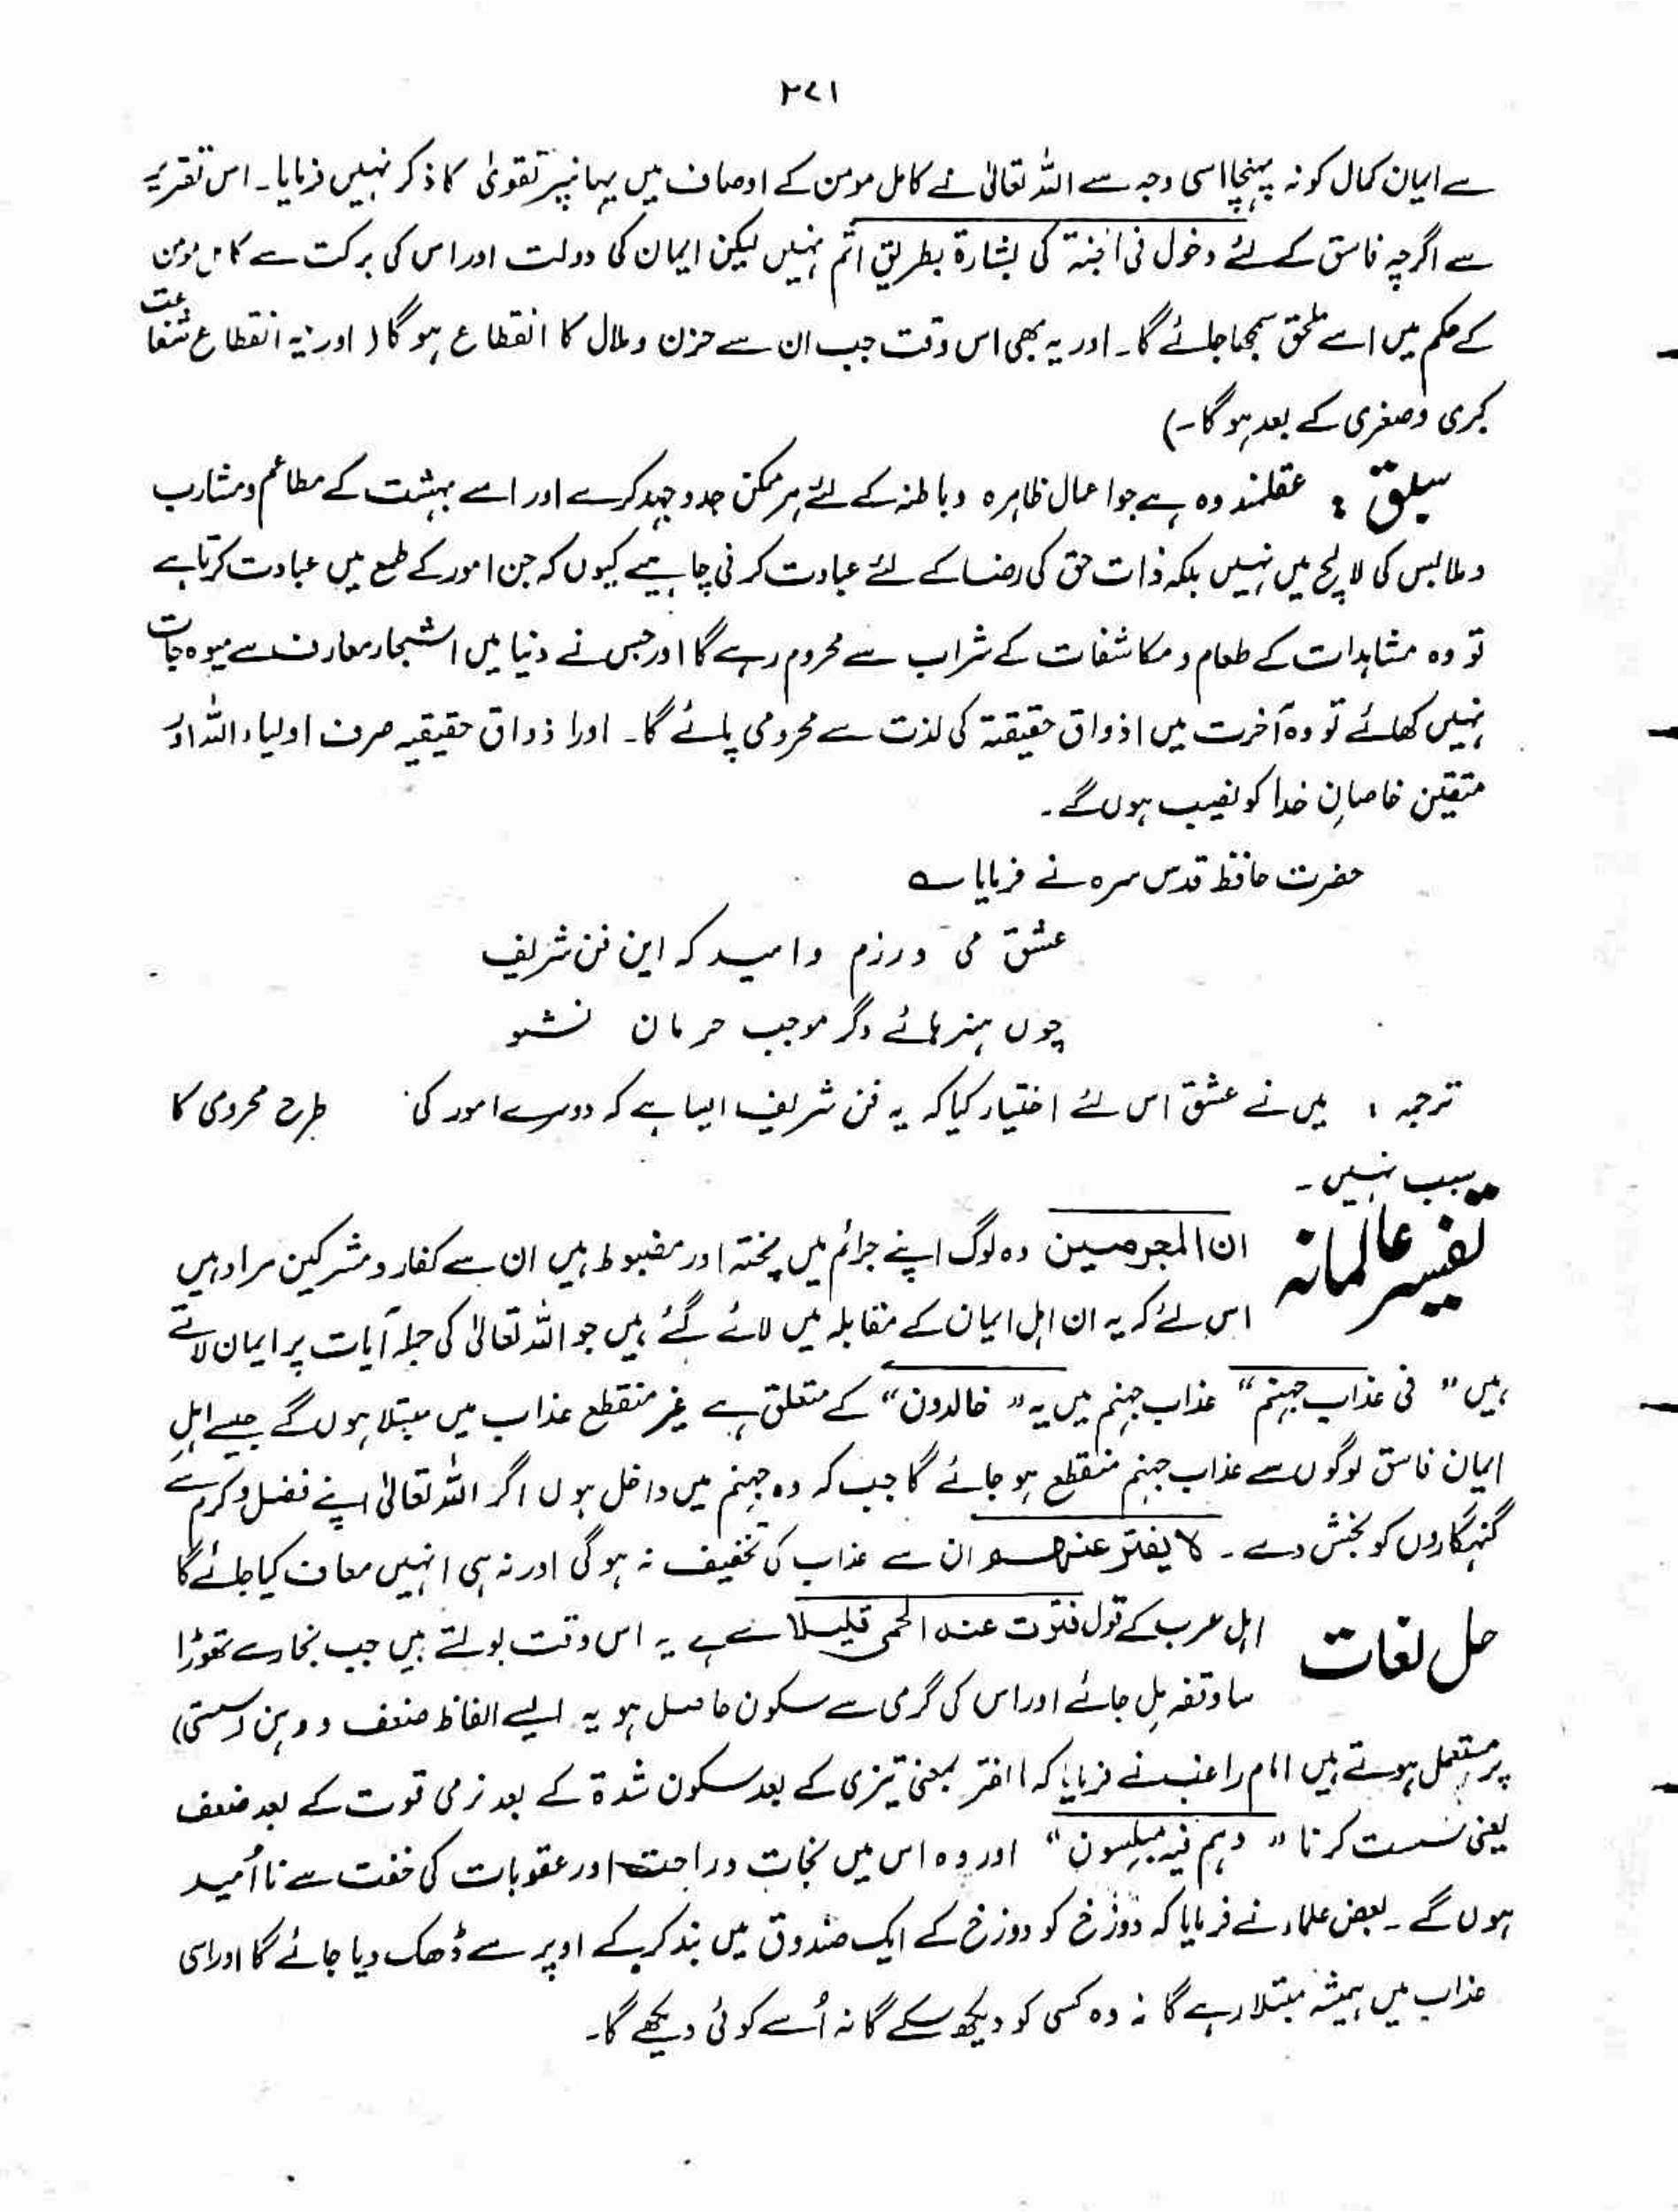 ۲۷۱
سے ایمان کمال کو نہ پہنچا اسی وجہ سے اللہ تعالیٰ نے کامل مومن کے اوصاف میں یہاں پر تقویٰ کا ذکر نہیں فرمایا۔ اس تقریر
سے اگرچہ فاسق کے لئے دخول فی الجنۃ کی بشارۃ بطریق اتم نہیں لیکن ایمان کی دولت اور اس کی برکت سے کامل مومن
کے حکم میں اسے ملحق سمجھا جائے گا۔ اور یہ بھی اس وقت جب ان سے حزن و ملال کا انقطاع ہوگا (اور یہ انقطاع شفاعت
کبری و صغری کے بعد ہوگا۔)
سبق : عقلمند وہ ہے جو اعمال ظاہرہ و باطنہ کے لئے ہر ممکن جدوجہد کرے اور اسے بہشت کے مطاعم و مشارب
و ملابس کی لالچ میں نہیں بلکہ ذات حق کی رضا کے لئے عبادت کرنی چاہیے کیوں کہ جن امور کے طمع میں عبادت کرتا ہے
تو وہ مشاہدات کے طعام و مکاشفات کے شراب سے محروم رہے گا اور جس نے دنیا میں اشجار معارف سے میوہ جات
نہیں کھائے تو وہ آخرت میں اذواق حقیقتہ کی لذت سے محرومی پائے گا۔ اور اذواق حقیقیہ صرف اولیاء اللہ اور
متقین خاصانِ خدا کو نصیب ہوں گے۔
حضرت حافظ قدس سرہ نے فرمایا ؎
عشق می ورزم و امید کہ این فن شریف
چوں ہنر ہائے دگر موجب حرمان نشو
ترجمہ : میں نے عشق اس لئے اختیار کیا کہ یہ فن شریف ایسا ہے کہ دوسرے امور کی طرح محرومی کا
سبب نہیں۔
تفسیر عالمانہ ان المجرمین وہ لوگ اپنے جرائم میں پختہ اور مضبوط ہیں ان سے کفار و مشرکین مراد ہیں
اس لئے کہ یہ ان اہل ایمان کے مقابلہ میں لائے گئے ہیں جو اللہ تعالیٰ کی جملہ آیات پر ایمان لاتے
ہیں " فی عذاب جہنم " عذاب جہنم میں یہ " خالدون " کے متعلق ہے غیر منقطع عذاب میں مبتلا ہوں گے جیسے اہلِ
ایمان فاسق لوگوں سے عذاب جہنم منقطع ہو جائے گا جب کہ وہ جہنم میں داخل ہوں اگر اللہ تعالیٰ اپنے فضل و کرم سے
گنہگاروں کو بخش دے۔ لا یفتر عنہم ان سے عذاب کی تخفیف نہ ہوگی اور نہ ہی انہیں معاف کیا جائے گا
حل لغات اہل عرب کے قول فترت عنہ الحمی قلیلا سے ہے یہ اس وقت بولتے ہیں جب بخار سے تھوڑا
سا وقفہ مل جائے اور اس کی گرمی سے سکون حاصل ہو یہ ایسے الفاظ ضعف و وہن (سستی)
پر مستعمل ہوتے ہیں امام راغب نے فرمایا کہ الفتر بمعنی تیزی کے بعد سکون شدۃ کے بعد نرمی قوت کے بعد ضعف
یعنی سست کرنا " وہم فیہ مبلسون " اور وہ اس میں نجات و راحت اور عقوبات کی خفت سے نا اُمید
ہوں گے۔ بعض علماء نے فرمایا کہ دوزخ کو دوزخ کے ایک صندوق میں بند کرکے اوپر سے ڈھک دیا جائے گا اور اسی
عذاب میں ہمیشہ مبتلا رہے گا نہ وہ کسی کو دیکھ سکے گا نہ اُسے کوئی دیکھے گا۔